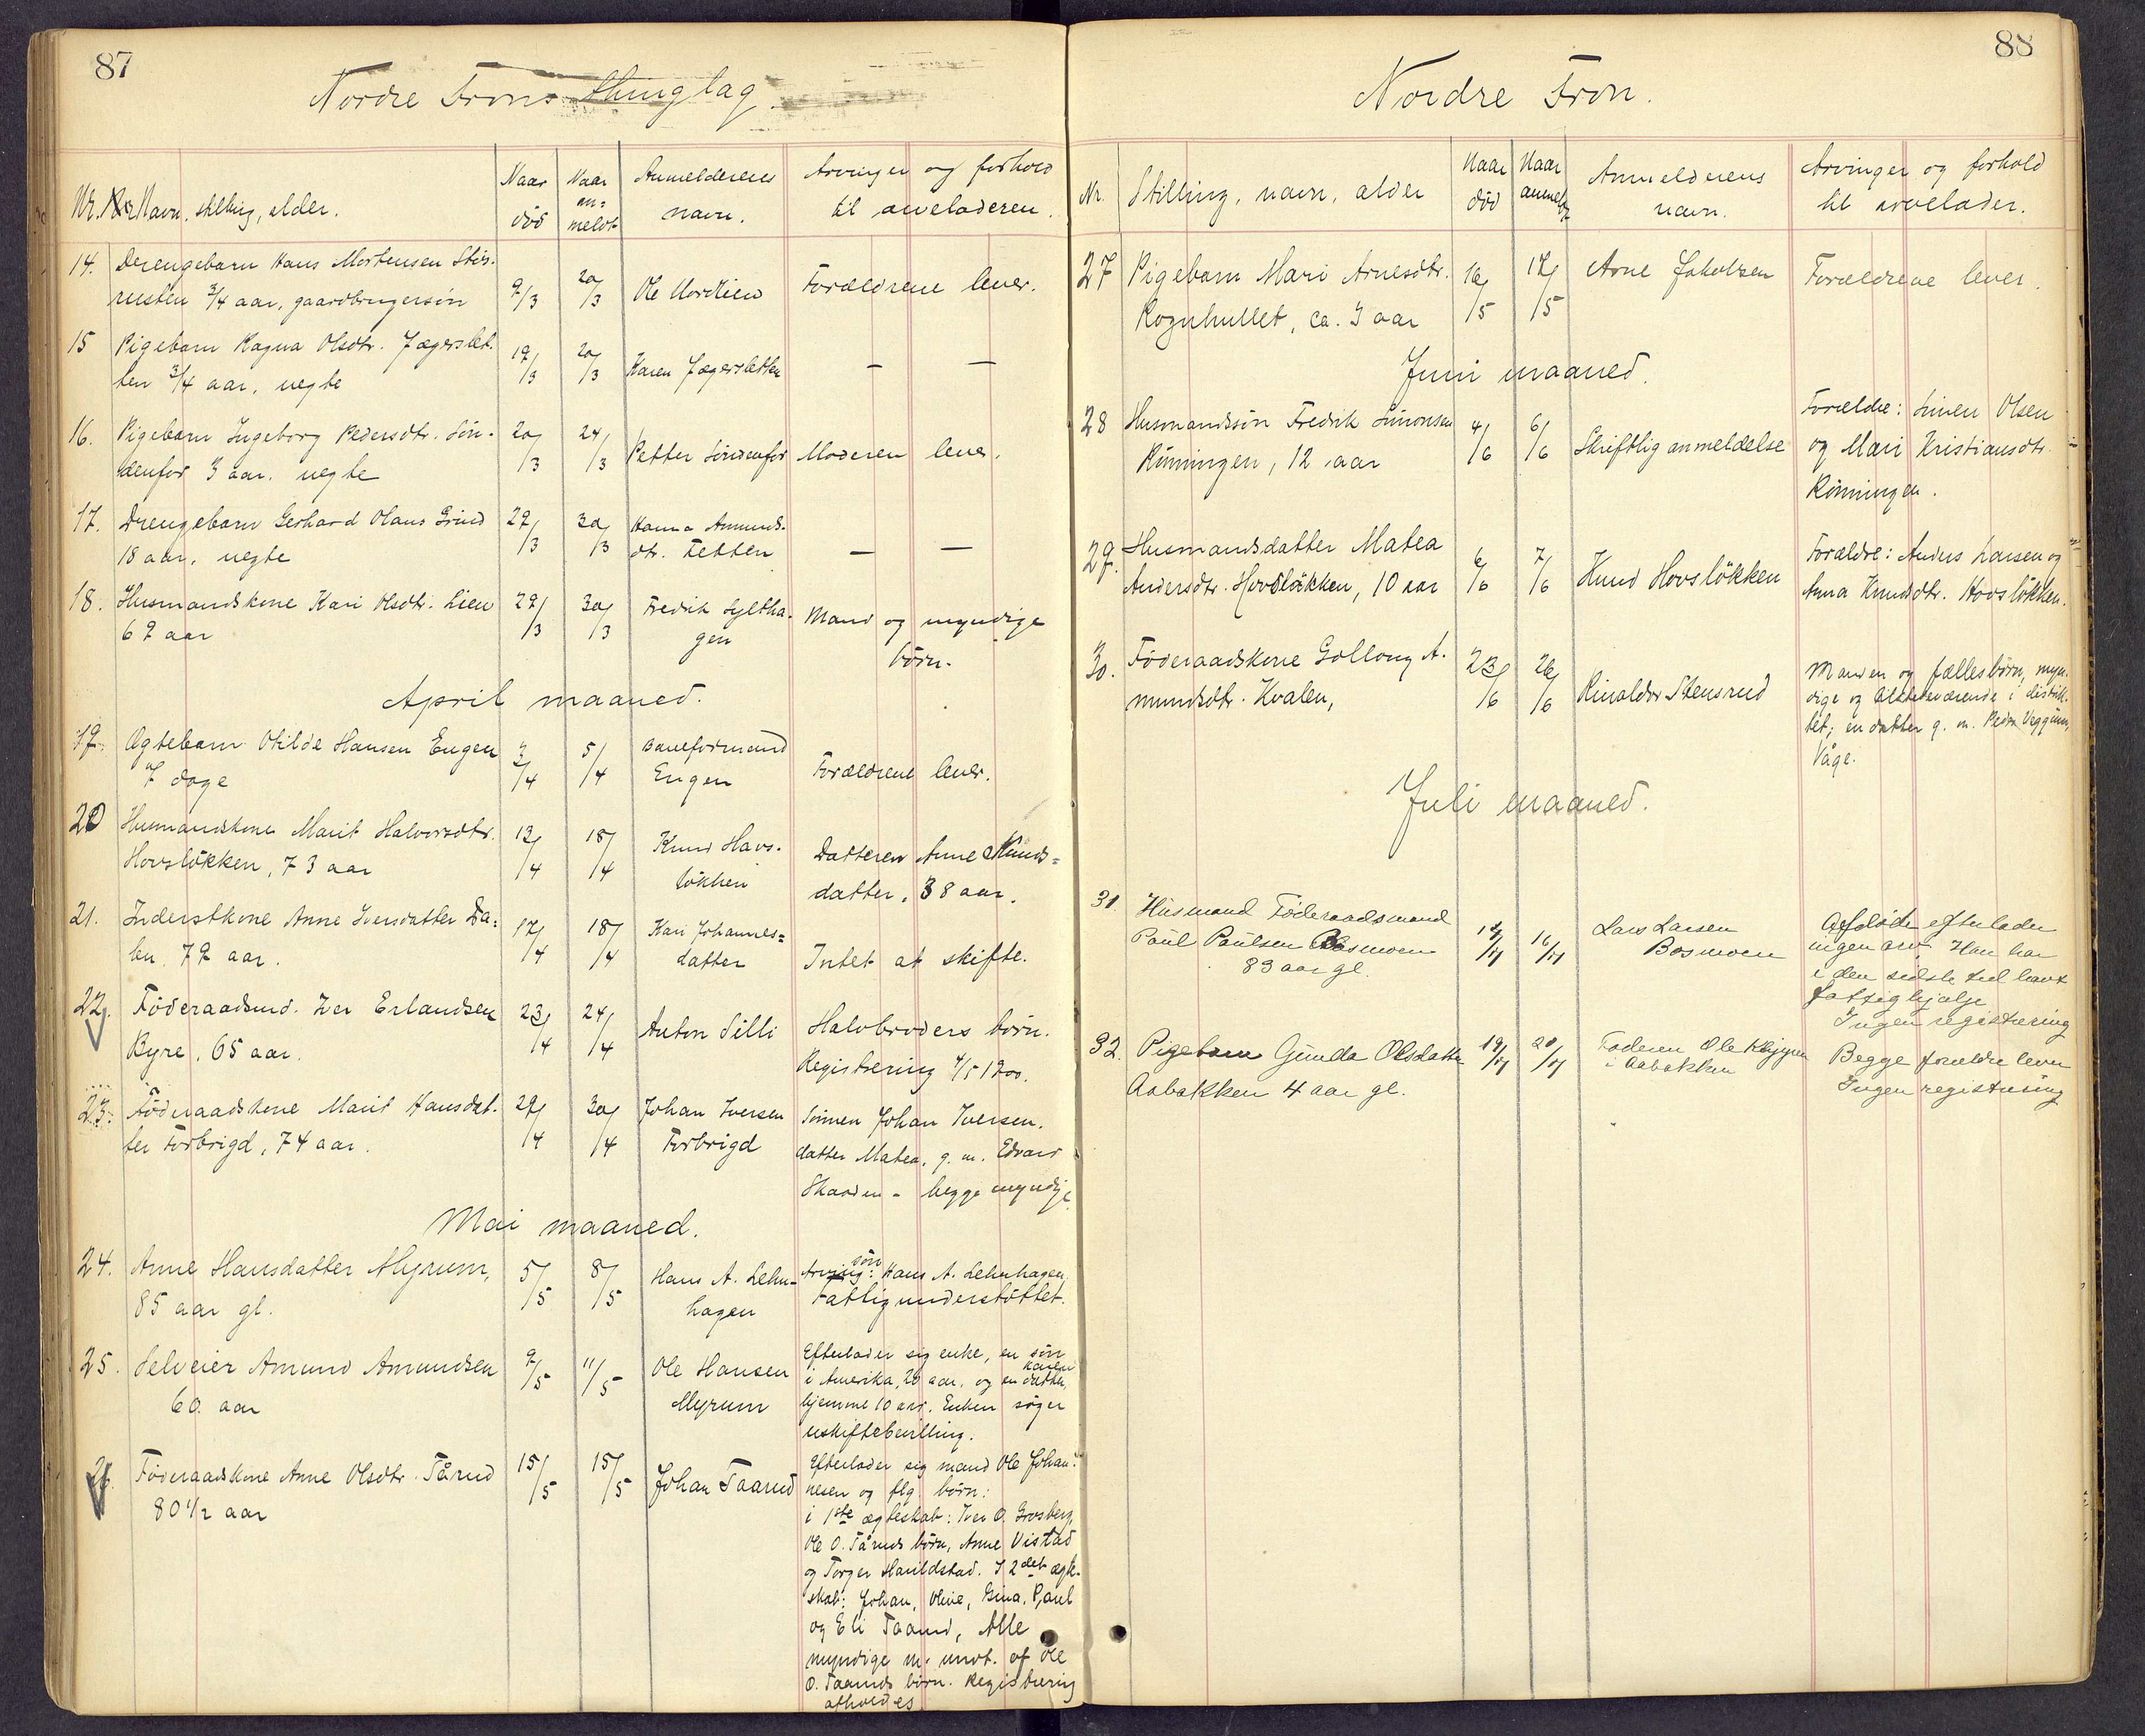 87
Nordre Frons thinglag.
Nr. Navn, stilling, alder.
Naar död
Naar an=meldt
Anmelderens navn.
Arvinger og forhold til arveladeren.
14. Drengebarn Hans Mortensen Stör-
rusten 3/4 aar, gaardbrugersön
9/3
20/3
Ole Nordlien
Forældrene lever.
15 Pigebarn Ragna Olsdtr. Jægerslet-
ten 3/4 aar, uegte
19/3
20/3
Karen Jægersletten
— —
16. Pigebarn Ingeborg Pedersdtr. Sön-
denfor 3 aar, uegte
20/3
24/3
Petter Söndenfor
Moderen lever.
17. Drengebarn Gerhard Olaus Grind
18 aar, uegte
29/3
30/3
Hanna Amunds-
dtr. Tetten
— —
18. Husmandskone Kari Olsdtr. Lien
69 aar
29/3
30/3
Fredrik Syltha-
gen
Mand og myndige
börn.
April maaned.
19. Ægtebarn Otilde Hansen Engen
7 dage
3/4
5/4
Baneformand
Engen
Forældrene lever.
20 Husmandskone Marit Halvorsdtr.
Hovslökken, 73 aar
13/4
18/4
Knud Hovs-
lökken
Datteren Anne Knuds=
datter, 38 aar.
21. Inderstkone Anne Iversdatter Da=
len, 79 aar.
17/4
18/4
Kari Johannes=
datter
Intet at skifte.
22. Föderaadsmd. Iver Erlandsen
Byre, 65 aar.
23/4
24/4
Anton Silli
Halvbroders börn.
Registrering 4/5 1900.
23. Föderaadskone Marit Hansdat-
ter Forbrigd, 74 aar.
29/4
30/4
Johan Iversen
Forbrigd
Sönnen Johan Iversen,
datter Matea, g. m. Edvard
Skaaden - begge myndige.
Mai maaned.
24. Anne Hansdatter Myrum,
85 aar gl.
5/5
8/5
Hans A. Lehn-
hagen
Arving: sön Hans A. Lehnhagen.
Fattigunderstöttet.
25. Selveier Amund Amundsen
60 aar
9/5
11/5
Ole Hansen
Myrum
Efterlader sig enke, en sön
i Amerika, 20 aar, og en datter, Karen
hjemme 10 aar. Enken söger
uskiftebevilling.
26. Föderaadskone Anne Olsdtr. Tårud
80 1/2 aar
15/5
15/5
Johan Taarud
Efterlader sig mand Ole Johan-
nesen og flg. börn:
i 1ste ægteskab: Iver O. Grosberg,
Ole O. Tåruds börn, Anne Vistad
og Torger Haraldstad. I 2det ægte-
skab: Johan, Oline, Gina, Paul
og Eli Taarud, Alle
myndige m. undt. af Ole
O. Taaruds börn. Registrering
afholdes
88
Nordre Fron.
Nr.
Stilling, navn, alder
Naar död
Naar anmeldt
Anmelderens navn.
Arvinger og forhold til arvelader.
27 Pigebarn Mari Arnesdtr.
Rognhullet, ca. 3 aar
16/5
17/5
Arne Jakobsen
Forældrene lever.
Juni maaned.
28 Husmandssön Fredrik Simonsen
Rönningen, 12 aar
4/6
6/6
Skriftlig anmeldelse
Forældre: Simen Olsen
og Mari Kristiansdtr.
Rönningen.
29. Husmandsdatter Matea
Andersdtr. Hovslökken, 10 aar
6/6
7/6
Knud Hovslökken
Forældre: Anders Larsen og
Anna Knudsdtr. Hovslökken.
30. Föderaadskone Gollaug A-
mundsdtr. Kvalen,
23/6
26/6
Rinaldo Stensrud
Manden og fællesbörn, myn-
dige og tilstedeværende i distrik-
tet; en datter g. m. Peder Veggum,
Våge.
Juli maaned.
31 Husmand Föderaadsmand
Paul Paulsen Bosmoen
83 aar gl.
16/7
Lars Larsen
Bosmoen
Afdöde efterlader
ingen arv. Han har
i den sidste tid havt
fattighjælp
Ingen registrering
32. Pigebarn Gunda Olsdatter
Aabakken 4 aar gl.
19/7
20/7
Faderen Ole
i Aabakken
Begge forældre lever
Ingen registrering